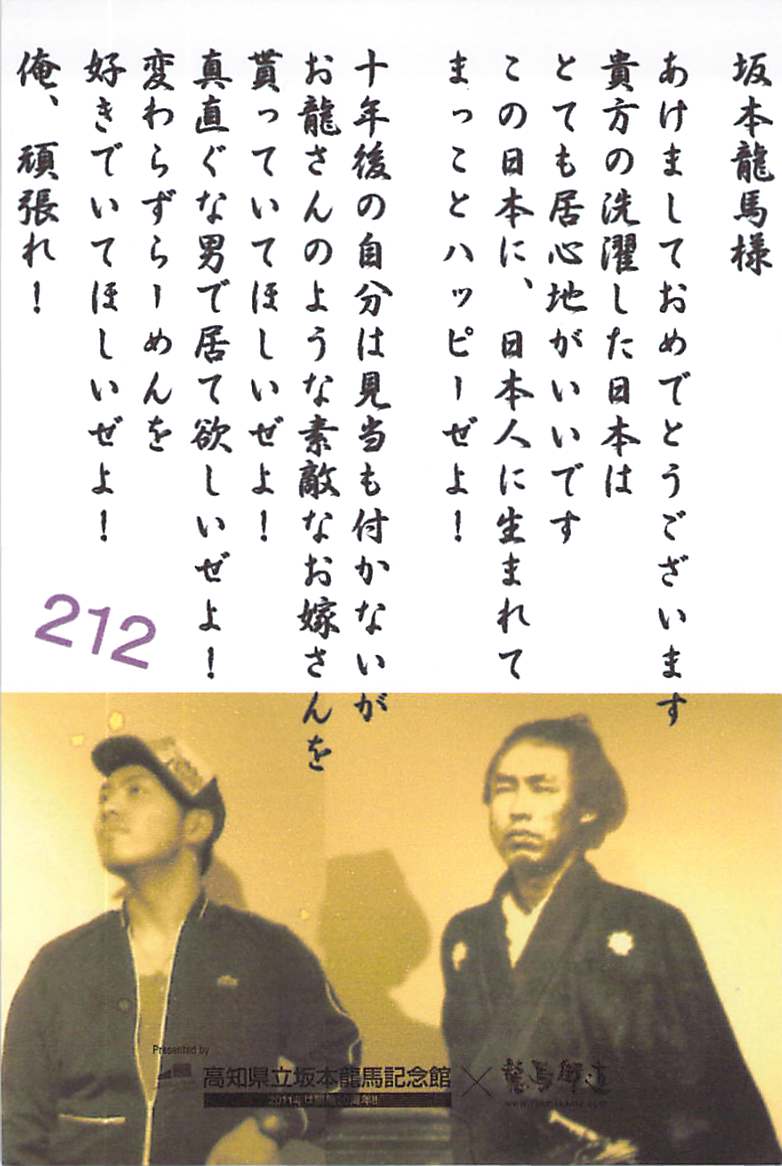 坂本龍馬様
あけましておめでとうございます
貴方の洗濯した日本は
とても居心地がいいです
この日本に、日本人に生まれて
まっことハッピーぜよ！
十年後の自分は見当も付かないが
お龍さんのような素敵なお嫁さんを
貰っていてほしいぜよ！
真直ぐな男で居て欲しいぜよ！
変わらずらーめんを
好きでいてほしいぜよ！
俺、頑張れ！
212
Presented by
高知県立坂本龍馬記念館×龍馬街道